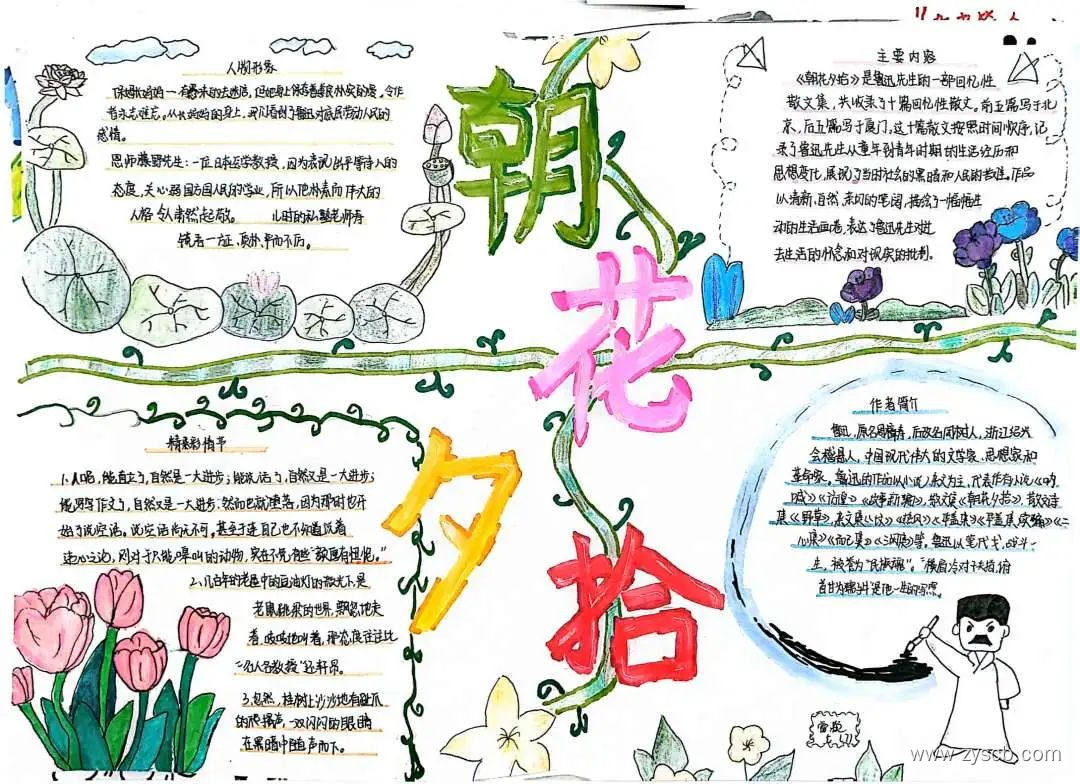 人物形象
思师藤野先生:一位日本医学教授,因为表现出平等待人的
态度,关心弱国国人民的学业,所以他朴素而伟大的
人格令人肃然起敬。 儿时的私塾老师寿
镜吾:一位
感情。
朝
花
夕
拾
主要内容
《朝花夕拾》是鲁迅先生的一部回忆性
散文集,共收录了十篇回忆性散文。前五篇写于北
京,后五篇写于厦门,这十篇散文按照时间顺序,记
录了鲁迅先生从童年到青年时期的生活经历和
思想变化,展现了当时社会的黑暗和人民的苦难。作品
以清新、自然、亲切的笔调,描绘了一幅幅生
动的生活画卷,表达了鲁迅先生对过
去生活的怀念和对现实的批判。
精彩情节
1.人呢,能直立了,自然是一大进步;能说话了,自然又是一大进步;
能写字作文了,自然又是一大进步。然而也就堕落,因为那时也开
始了说空话。说空话尚无不可,甚至于连自己也不知道说着
违心之论,则对于只能嗥叫的动物,实在不免"颜厚有忸怩"。
老鼠跳梁的世界,飘忽地走
着,吱吱地叫着,那态度往往比
"名人名教授"还轩昂。
3.忽然,桂树上沙沙地有趾爪
的爬搔声,一双闪闪的眼睛
在黑暗中随声而下。
作者简介
鲁迅,原名周樟寿,后改名周树人,浙江绍兴
会稽县人,中国现代伟大的文学家、思想家和
革命家。鲁迅的作品以小说、杂文为主,代表作有小说《呐
喊》《彷徨》《故事新编》,散文集《朝花夕拾》,散文诗
集《野草》,杂文集《坟》《热风》《华盖集》《华盖集续编》《二
心集》《而已集》《三闲集》等。鲁迅以笔代戈,战斗一
生,被誉为"民族魂"。"横眉冷对千夫指,俯
首甘为孺子牛"是他一生的写照。
www.zyscb.com